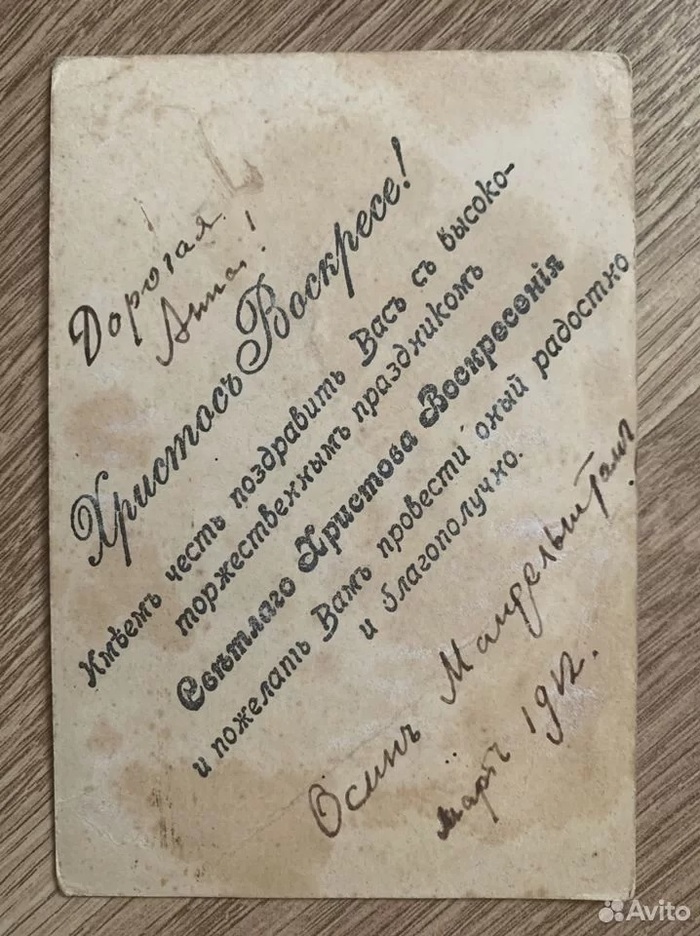 Дорогая
Анна!
Христосъ Воскресе!
Имѣемъ честь поздравить Васъ съ высоко-
торжественнымъ праздникомъ
Свѣтлаго Христова Воскресенія
и пожелать Вамъ провести оный радостно
и благополучно.
Осипъ Мандельштамъ
мартъ 1912.
Avito